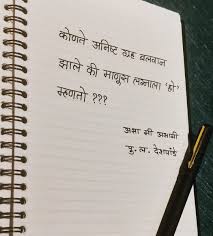 कोणते अनिष्ट ग्रह बलवान
झाले की माणूस लग्नाला 'हो'
म्हणतो ???
असा मी असामी
पु. ल. देशपांडे